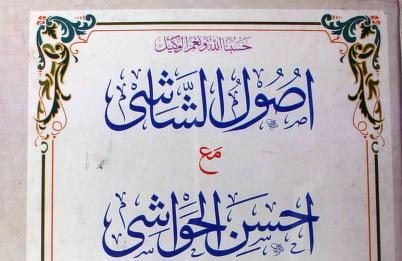 حَسْبُنَا اللّٰهُ وَنِعْمَ الْوَكِيْلُ
اُصُوْلُ الشَّاشِیْ
مَع
اَحْسَنُ الحَوَاشِیْ